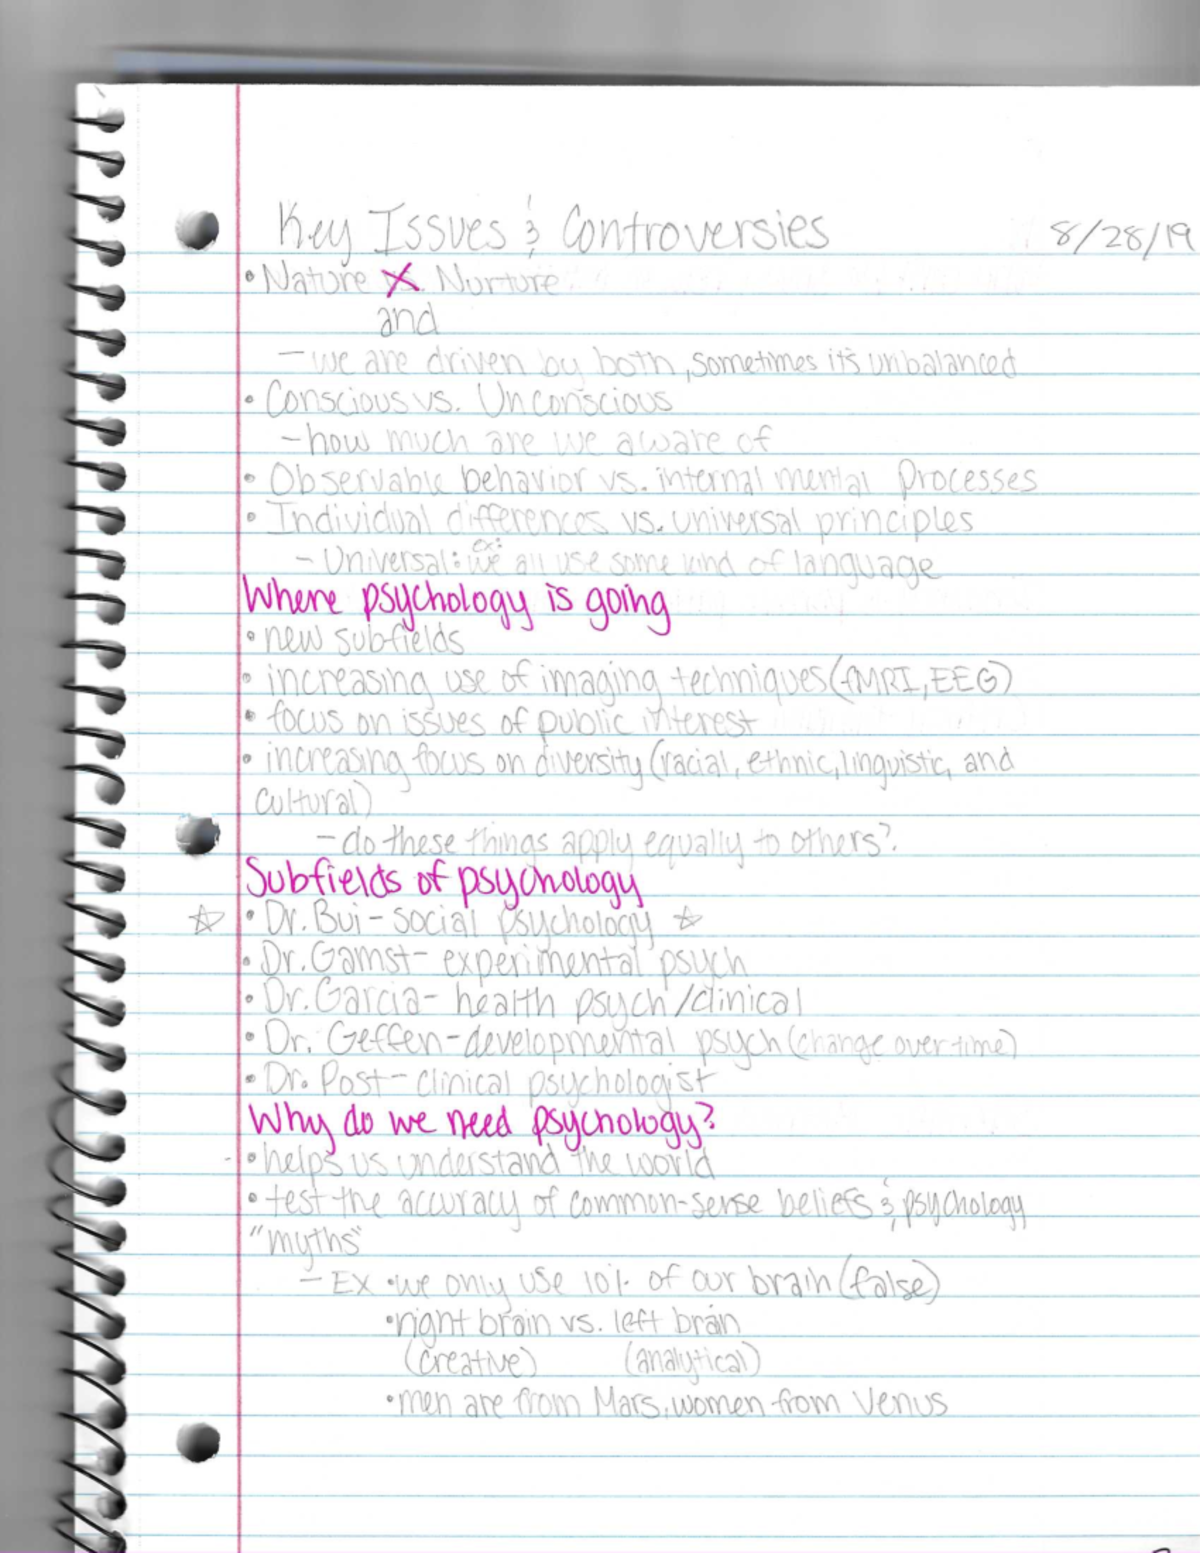 Key Issues & Controversies 8/28/19
• Nature vs. Nurture
and
- we are driven by both, sometimes it's unbalanced
• Conscious vs. Unconscious
- how much are we aware of
• Observable behavior vs. internal mental Processes
• Individual differences vs. universal principles
- Universal: ex: we all use some kind of language
Where psychology is going
• new subfields
• increasing use of imaging techniques (fMRI, EEG)
• focus on issues of public interest
• increasing focus on diversity (racial, ethnic, linguistic, and
cultural)
- do these things apply equally to others?
Subfields of psychology
☆ • Dr. Bui - social psychology ☆
• Dr. Gamst - experimental psych
• Dr. Garcia - health psych/clinical
• Dr. Geffen - developmental psych (change over time)
• Dr. Post - clinical psychologist
Why do we need psychology?
• helps us understand the world
• test the accuracy of common-sense beliefs & psychology
"myths"
- Ex • we only use 10% of our brain (false)
• right brain vs. left brain
(creative) (analytical)
• men are from Mars, women from Venus